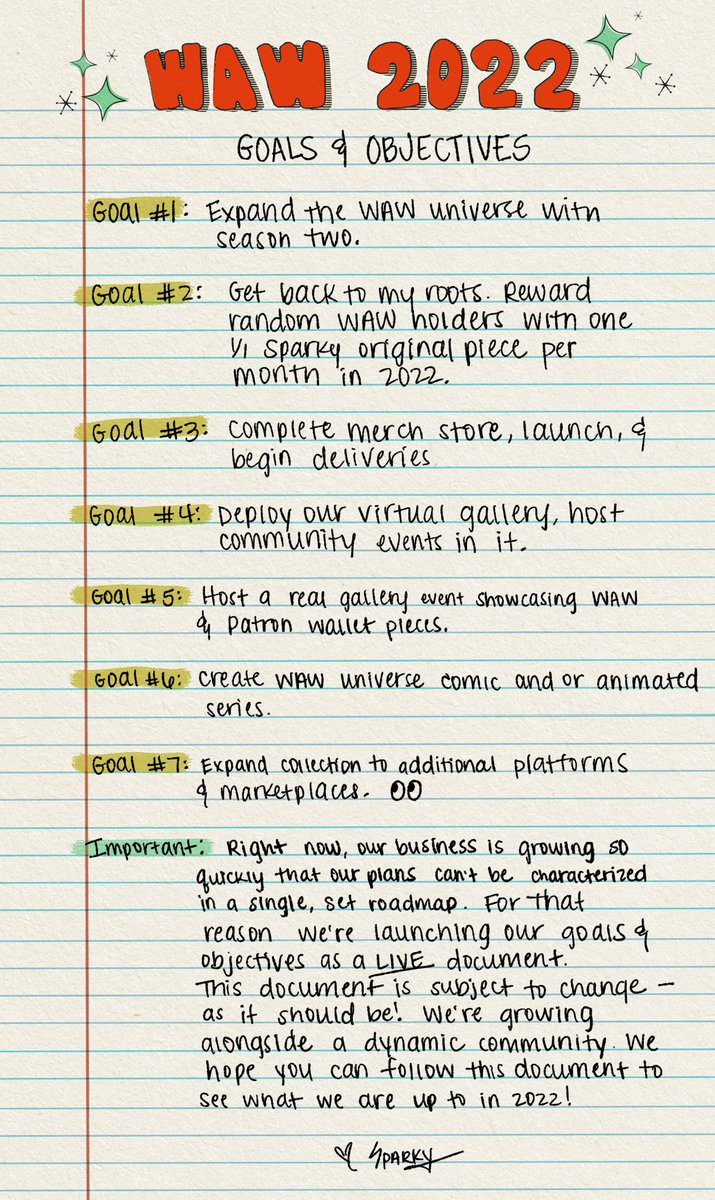 WAW 2022
GOALS & OBJECTIVES
Goal #1: Expand the WAW universe with
season two.
Goal #2: Get back to my roots. Reward
random WAW holders with one
1/1 Sparky original piece per
month in 2022.
Goal #3: Complete merch store, launch, &
begin deliveries
Goal #4: Deploy our virtual gallery, host
community events in it.
Goal #5: Host a real gallery event showcasing WAW
& Patron wallet pieces.
Goal #6: Create WAW universe comic and or animated
series.
Goal #7: Expand collection to additional platforms
& marketplaces. 👀
Important: Right now, our business is growing so
quickly that our plans can't be characterized
in a single, set roadmap. For that
reason we're launching our goals &
objectives as a LIVE document.
This document is subject to change -
as it should be! We're growing
alongside a dynamic community. We
hope you can follow this document to
see what we are up to in 2022!
♡ SPARKY